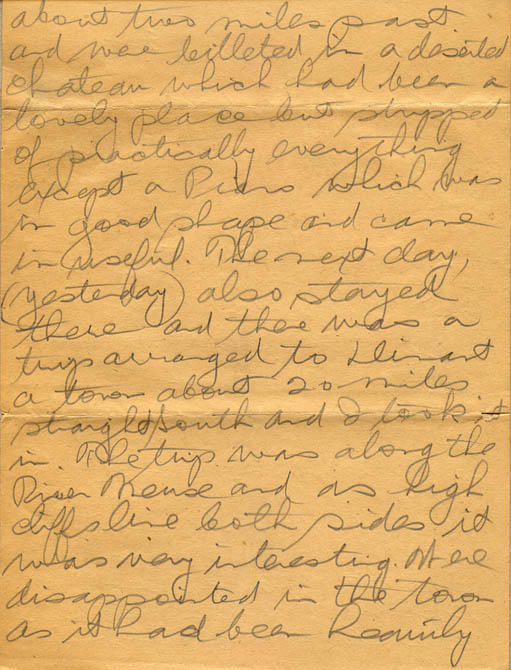 about two miles past
and were billeted in a deserted
chateau which had been a
lovely place but stripped
of practically everything
except a Piano which was
in good shape and came
in useful. The next day,
(yesterday) also stayed
there and there was a
trip arranged to Dinant
a town about 20 miles
straight south and I took it
in. The trip was along the
River Meuse and as high
cliffs line both sides it
was very interesting. Were
disappointed in the town
as it had been heavily